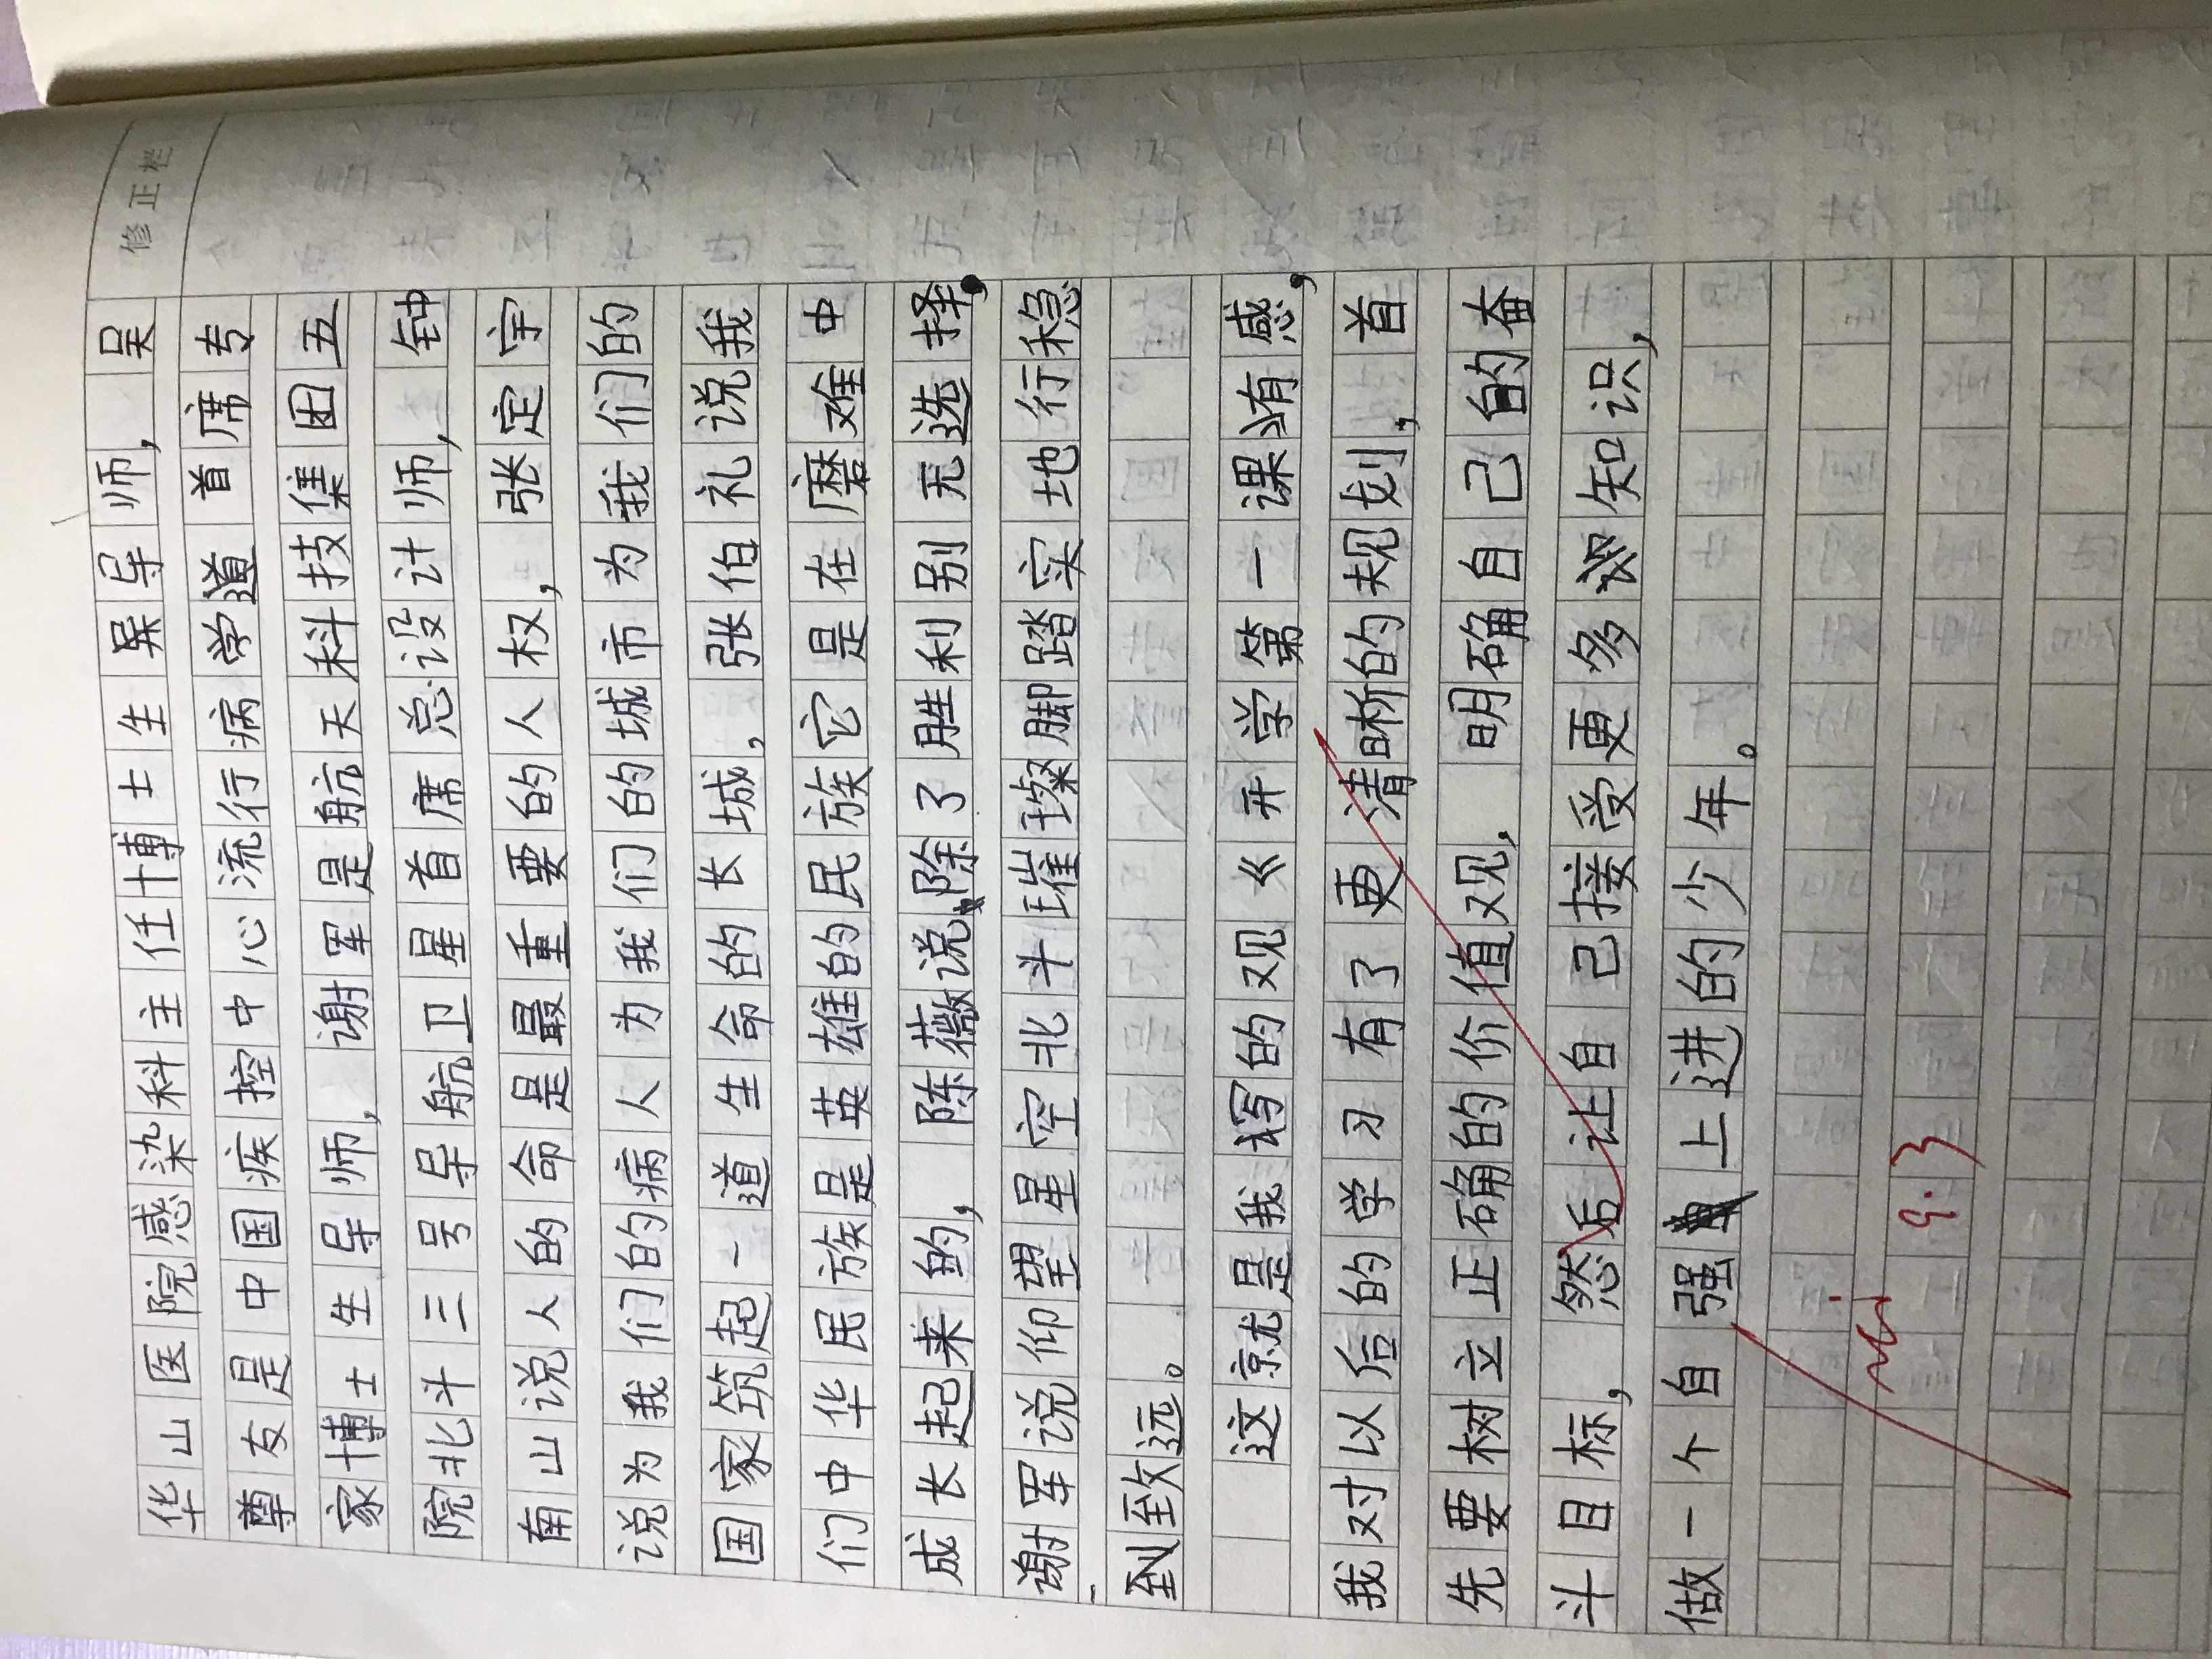 修正栏
华山医院感染科主任博士生导师，吴
尊友是中国疾控中心流行病学道首席专
家博士生导师，谢军是航天科技集团五
院北斗三号导航卫星首席总设计师，钟
南山说人的命是最重要的人权，张定宇
说为我们的病人为我们的城市为我们的
国家筑起一道生命的长城，张伯礼说我
们中华民族是英雄的民族它是在磨难中
成长起来的，陈薇说，除了胜利别无选择，
谢军说仰望星空北斗璀璨脚踏实地行稳
到致远。
这就是我写的观《开学第一课》有感，
我对以后的学习有了更清晰的规划，首
先要树立正确的价值观，明确自己的奋
斗目标，然后让自己接受更多知识，
做一个自强上进的少年。
9.3